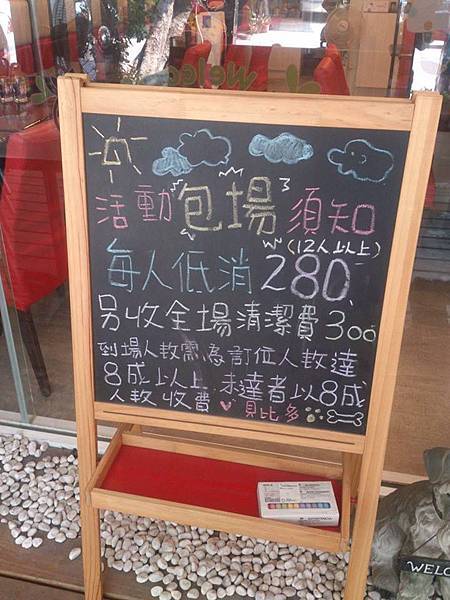 Welcome
活動包場須知
(12人以上)
每人低消280
另收全場清潔費300
到場人数需為訂位人数達
8成以上.未達者以8成
人数收費 貝比多
WELCO